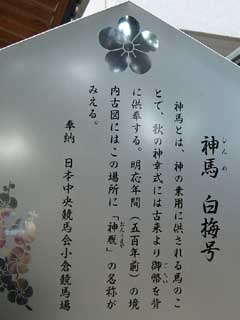 神馬 白梅号
しんめ
神馬とは、神の乗用に供される馬のこ
とで、秋の神幸式には古来より御幣を背
ごへい
に供奉する。明応年間(五百年前)の境
内古図にはこの場所に「神厩」の名称が
みえる。
奉納 日本中央競馬会小倉競馬場